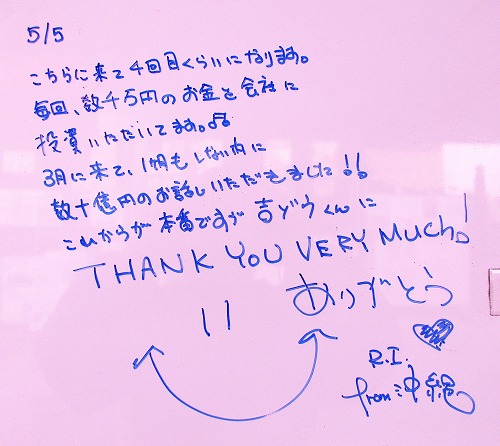 5/5
こちらに来て4回目くらいになります。
毎回、数千万円のお金を会社に
投資いただいてます。
3月に来て、1ヶ月もしない内に
数十億円のお話しいただきました!!
これからが本番ですが 吉ぞうくんに
THANK YOU VERY MUCH!
ありがとう
R.I.
from 沖縄